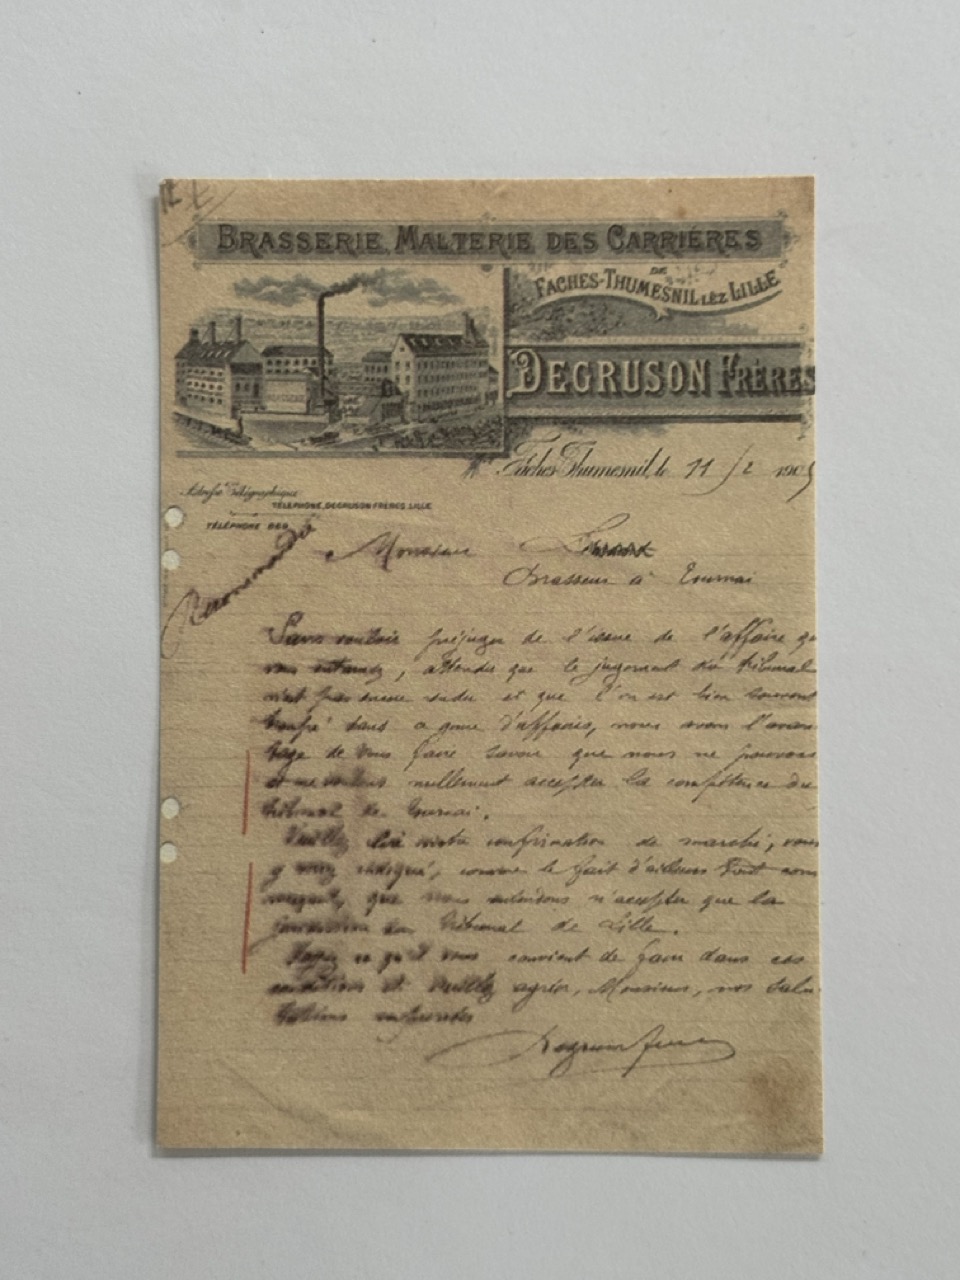 BRASSERIE, MALTERIE DES CARRIÈRES
DE
FACHES-THUMESNIL LÈZ LILLE
BRASSERIE
DEGRUSON FRÈRES
Faches-Thumesnil, le 11/2 190
Adresse Télégraphique
TÉLÉPHONE, DEGRUSON FRÈRES, LILLE
TÉLÉPHONE
Recommandée
Monsieur
Brasseur à Tournai
Sans vouloir préjuger de l'issue de l'affaire
, attendu que le jugement du tribunal
n'est pas encore rendu et que l'on est bien souvent
trompé dans ce genre d'affaires, nous avons l'avan
tage de vous faire savoir que nous ne pouvons
et ne voulons nullement accepter la compétence du
tribunal de Tournai.
Veuillez lire notre confirmation de marché, vous
y verrez indiqué, comme le fait d'ailleurs
que nous entendons n'accepter que la
juridiction du Tribunal de Lille.
Voyez ce qu'il vous convient de faire dans ces
conditions et veuillez agréer, Monsieur, nos salu
tations
Degruson frères